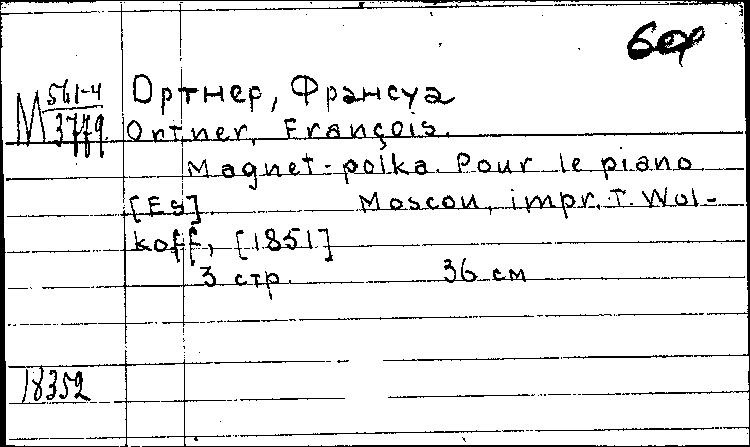 М 561-4
3779
Ортнер, Франсуа
Ortner, François.
Magnet-polka. Pour le piano
[Es]. Moscou, impr. T. Wol-
koff, [1851]
3 стр. 36 см
18352